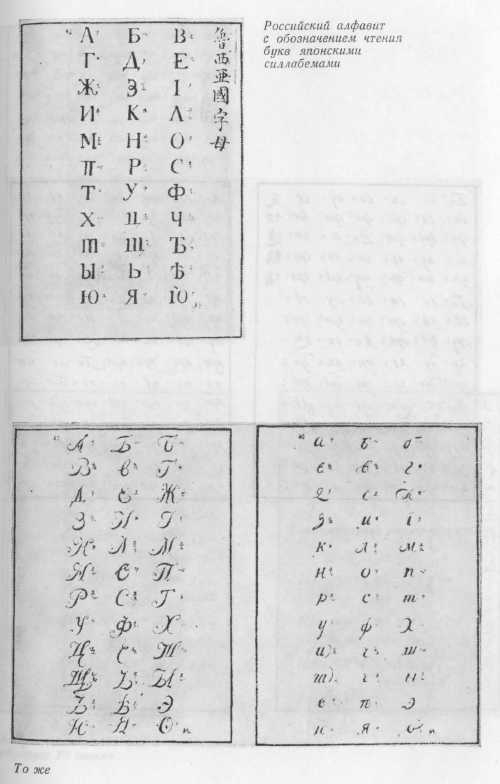 Российский алфавит
с обозначением чтения
букв японскими
силлабемами
魯西亞國字母
А Б В
Г Д Е
Ж З І
И К Л
М Н О
П Р С
Т У Ф
Х Ц Ч
Ш Щ Ъ
Ы Ь Ѣ
Ю Я
А Б Б
В в Г
Д Е Ж
З И І
К Л М
Н О П
Р С Т
У Ф Х
Ц Ш
Щ Ъ Ы
Ѣ Э
Ю Я Ѳ
а б б
в в г
д е ж
з и і
к л м
н о п
р с т
у ф х
ц ч ш
э
ю я
То же